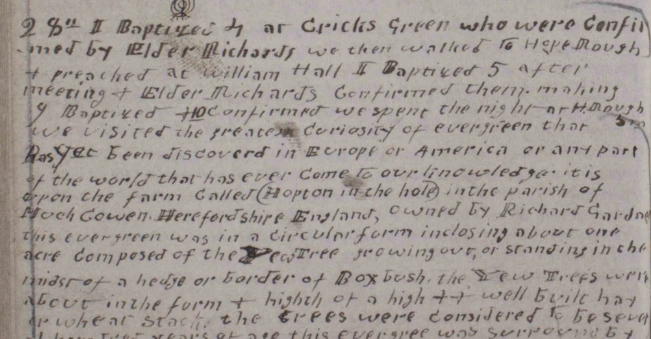 28th I Baptized 4 at Cricks Green who were Confir
-med by Elder Richards we then walked to Hope Rough
+ preached at William Hall I Baptized 5 after
meeting + Elder Richards Confirmed them. making
9 Baptized + Confirmed we spent the night at H. Rough
We visited the greatest Curiosity of evergreen that
has yet been discoverd in Europe or America or any part
of the world that has ever Come to our knowledge. it is
upon the farm Called (Hopton in the hole) in the parish of
Much Cowen. Herefordshire England, owned by Richard Gardne
this evergreen was in a Circular form inclosing about one
acre Composed of the Yew Tree growing out, or standing in the
midst of a hedge or border of Box bush. the Yew Trees were
about in the form + highth of a high ++ well built hay
or wheat stack. the trees were Considered to be seve
years of age this evergree was surround by